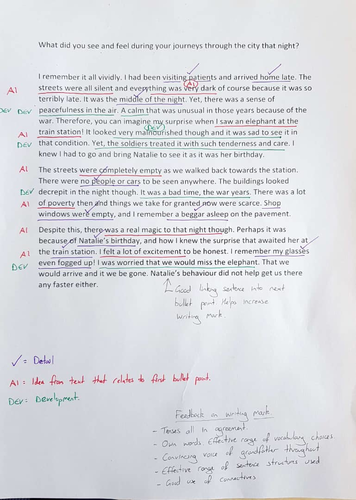 What did you see and feel during your journeys through the city that night?
I remember it all vividly. I had been visiting patients and arrived home late. The
AI streets were all silent and everything was very dark of course because it was so
AI
terribly late. It was the middle of the night. Yet, there was a sense of
DEV DEV peacefulness in the air. A calm that was unusual in those years because of the
war. Therefore, you can imagine my surprise when I saw an elephant at the
AI train station! It looked very malnourished though and it was sad to see it in
DEV
DEV that condition. Yet, the soldiers treated it with such tenderness and care. I
knew I had to go and bring Natalie to see it as it was her birthday.
AI The streets were completely empty as we walked back towards the station.
There were no people or cars to be seen anywhere. The buildings looked
DEV decrepit in the night though. It was a bad time, the war years. There was a lot
AI of poverty then and things we take for granted now were scarce. Shop
windows were empty, and I remember a beggar asleep on the pavement.
AI Despite this, there was a real magic to that night though. Perhaps it was
because of Natalie's birthday, and how I knew the surprise that awaited her at
AI the train station. I felt a lot of excitement to be honest. I remember my glasses
DEV even fogged up! I was worried that we would miss the elephant. That we
would arrive and it we be gone. Natalie's behaviour did not help get us there
any faster either.
↑ Good linking sentence into next
bullet point. Helps increase
writing mark.
✓ = Detail
AI = Idea from text that relates to first bullet point.
DEV = Development.
Feedback on writing mark
- Tenses all in agreement
- Own words effective range of vocabulary choices
- Convincing voice of grandfather throughout
- Effective range of sentence structures used
- Good use of connectives